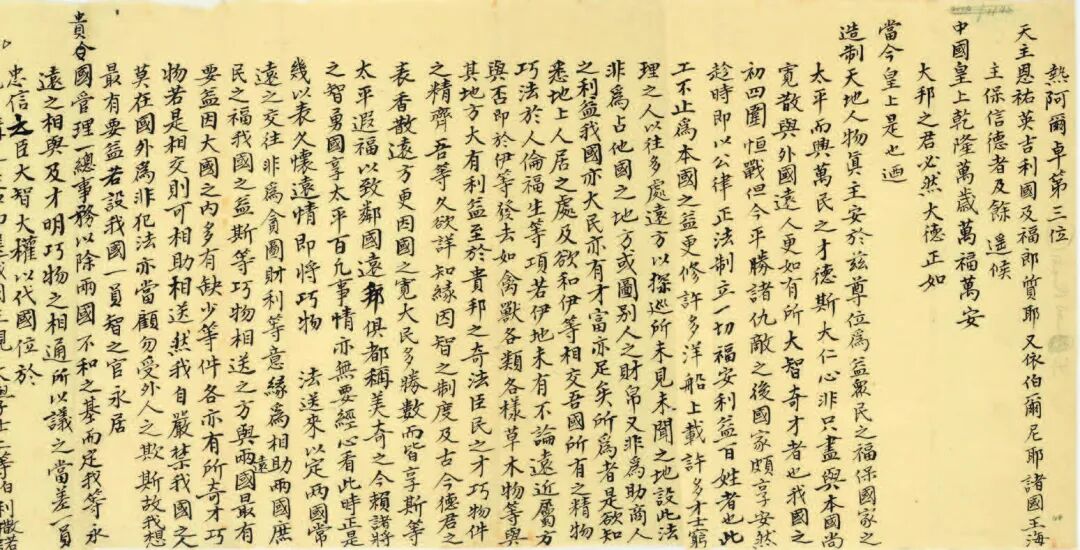 熱阿爾卓第三位
天主恩祐英吉利國及福郎質耶又依伯爾尼耶諸國王海
主保信德者及餘 遥候
中國皇上乾隆萬歲萬福萬安
大邦之君必然大德正如
當今皇上是也迺
造制天地人物真主安於兹尊位為益衆民之福保國家之
太平而興萬民之才德斯大仁心非只盡與本國尚
寛散與外國遠人更如有所大智奇才者也我國之
初四圍恒戰但今平勝諸仇敵之後國家頗享安然
趁時即以公律正法制立一切福安利益百姓者也此
工不止為本國之益更修許多洋船上載許多才士窮
理之人以往多處遠方以探巡所未見未聞之地設此法
非為占他國之地方或圖别人之財帛又非為助商人
之利益我國亦大民亦有才富亦足矣所為者是欲知
悉地上人居之處及欲和伊等相交吾國所有之精物
巧法於人倫福生等項若伊地未有不論遠近屬方
與否即於伊等發去如禽獸各類各様草木物等與
其地方大有利益至於貴邦之奇法臣民之才巧物件
之精齊吾等久欲詳知緣因智之制度及古今德君之
表香散遠方更因國之寛大民多勝數而皆享斯等
太平遐福以致鄰國遠邦俱都稱美奇之今賴諸將
之智勇國享太平百凢事情亦無要經心看此時正是
幾以表久懷遠情即將巧物 法送來以定两國常
遠之交往非為貪圖財利等意緣為相助两國庶
民之福我國之益斯等巧物相送之方與兩遠國最有
要益因大國之内多有缺少等件各亦有所奇才巧
物若是相交則可相助相送然我自嚴禁我國之人
莫在國外為非犯法亦當顧勿受外人之欺斯故我想
最有要益若設我國一員智之官永居
貴國管理一總事務以除兩國不和之基而定我等永
遠之相與及才明巧物之相通所以議之當差一員
忠信大臣大智大權以代國位於